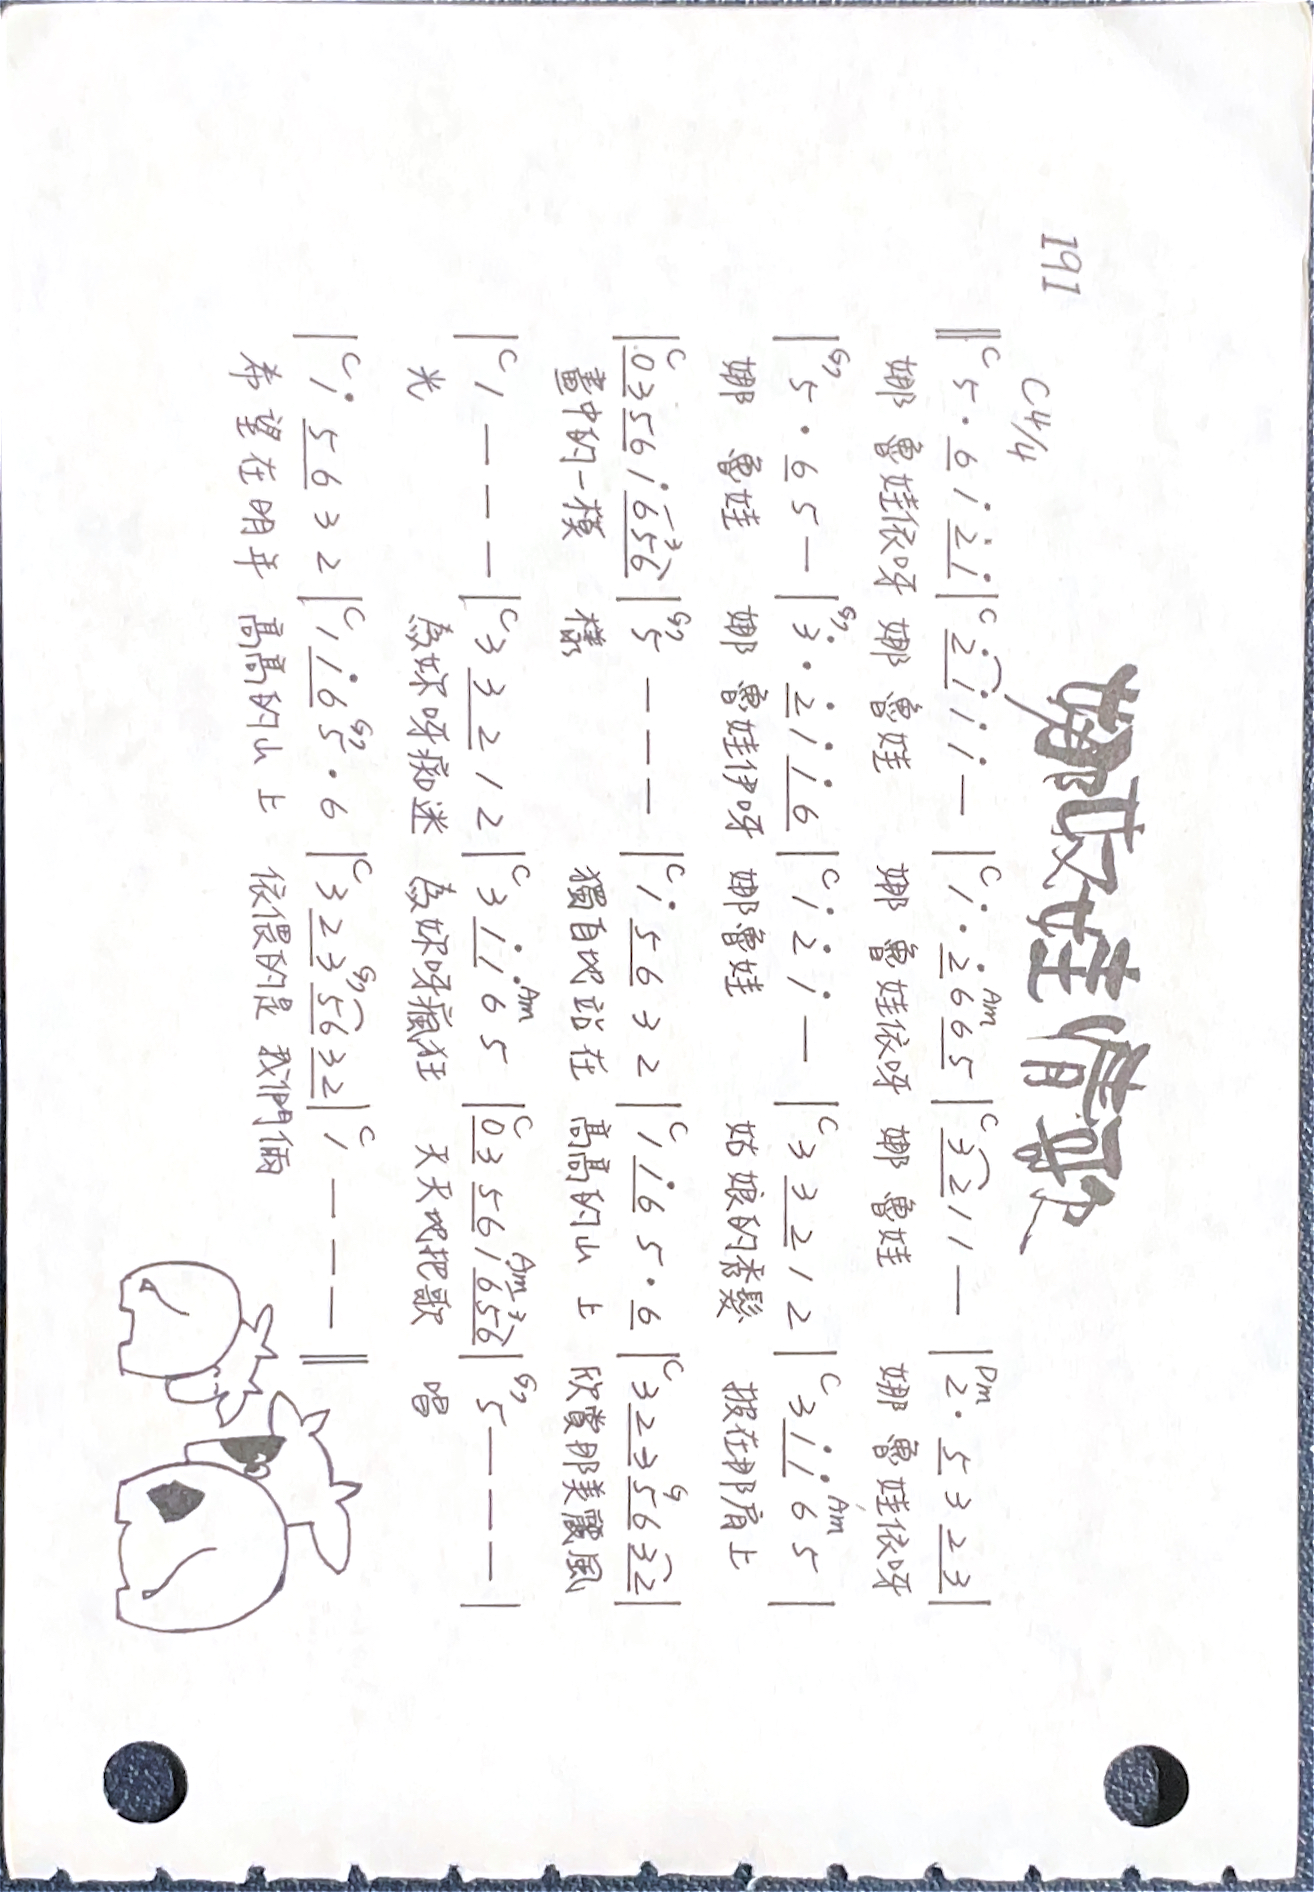 191
娜奴娃情歌
C 4/4
‖C 5 · 6 1̇ 2̇ 1̇ |C 2̇ 1̇ 1̇ 1̇ — |C 1̇ · 2̇ Am 6 6 5 |C 3 2 1 1 — |Dm 2 · 5 3 2 3|
娜 魯娃依呀 娜 魯娃 娜 魯娃依呀 娜 魯娃 娜 魯娃依呀
|G7 5 · 6 5 — |G7 3̇ · 2̇ 1̇ 1̇ 6 |C 1̇ 2̇ 1̇ — |C 3 3 2 1 2 |C 3 1̇ 1̇ Am 6 5 |
娜 魯娃 娜 魯娃伊呀 娜魯娃 姑娘的秀髮 披在那肩上
|C 0 3 5 6 1̇ 3 6 5 6 |G7 5 — — — |C 1̇ 5 6 3 2 |C 1 1̇ 6 5 · 6 |C 3 2 3 G 5 6 3 2|
畫中的一模 樣 獨自地站在 高高的山 上 欣賞那美麗風
|C 1 — — — |C 3 3 2 1 2 |C 3 1̇ 1̇ Am 6 5 |C 0 3 5 6 Am 1 3 6 5 6 |G7 5 — — — |
光 為妳呀痴迷 為妳呀瘋狂 天天地把歌 唱
|C 1̇ 5 6 3 2 |C 1 1̇ 6 G7 5 · 6 |C 3 2 3 G7 5 6 3 2 |C 1 — — — ‖
希望在明年 高高的山 上 依偎的是 我們倆